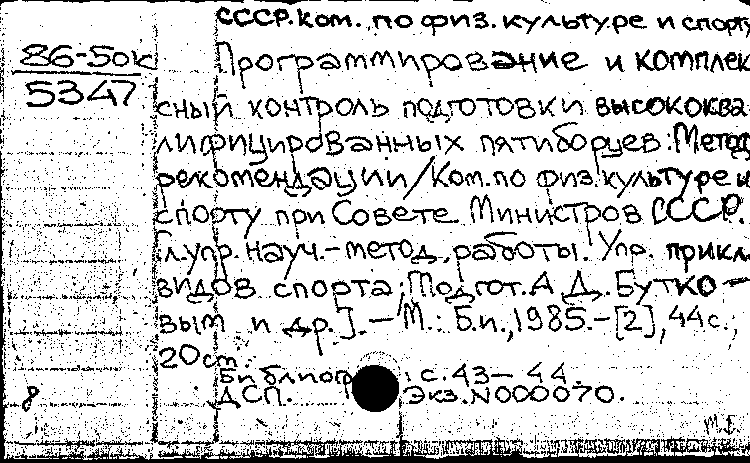 СССР. Ком. по физ. культуре и спорту
86-50к
5347
Программирование и комплек
сный контроль подготовки высококва
лифицированных пятиборцев: Метод
рекомендации/Ком. по физ. культуре и
спорту при Совете Министров СССР.
Гл. упр. науч.-метод. работы. Упр. прикл.
видов спорта; Подгот. А. Д. Бутко-
вым и др.]. - М.: Б.и., 1985. - [2], 44 с.;
20 см.
Библиогр.: с. 43-44.
ДСП. Экз. N000070.
8